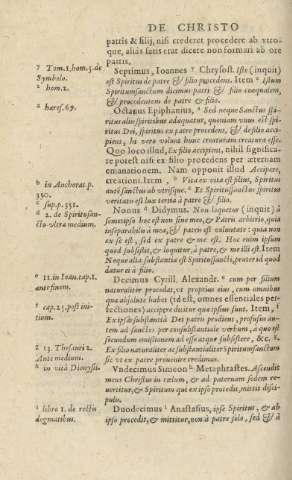 DE CHRISTO
patris & filij, nisi crederet procedere ab vtro-
que, aliàs satis erat dicere non formari ab ore
patris,
Septimus, Ioannes Chrysost. Iste (inquit)
est Spiritus de patre & filio procedens. Item
Spiritumsanctum dicimus patri & filio coæqualem,
& procedentem de patre & filio.
Octauus Epiphanius, Sed neque Sanctus spi-
ritus alius spiritibus adæquatur, quoniam vnus est spi-
ritus Dei, spiritus ex patre procedens, & de filio acci-
piens, hi vero volunt hunc creaturam creaturæ esse.
Quo loco illud, Ex filio accipiens, nihil significa-
re potest nisi ex filio procedens per æternam
emanationem. Nam opponit illud Accipere,
creationi. Item, Vita ex vita est filius, Spiritus
autē sanctus ab vtrisque. Ex Spiritusanctus spiritus
veritatis est lux tertia à patre & filio.
Nonus Didymus. Non loquetur (inquit) à
semetipso hoc est non sine me, & Patris arbitrio, quia
inseparabilis à mea, & patris est voluntate: quia non
ex se est, sed ex patre & me est. Hoc enim ipsum
quod subsistit, & loquitur, à patre, & me illi est. Item
Neque alia substantia est Spiritussancti, præter id quod
datur ei à filio.
Decimus Cyrill. Alexandr. cum per filium
naturaliter procedat, vt proprius eius, cum omnibus
quæ absolute habet (id est, omnes essentiales per-
fectiones) accipere dicitur quæ ipsius sunt. Item,
Ex ipsa substantia Dei patris prodiens, profusus au-
tem ad sanctos per consubstantiale verbum, a quo est
secundum emissionem ad esse atque subsistere, &c.
Ex filio naturaliter ac substantialiter Spiritumsanctum
sic vt ex patre prouenire credidimus.
Vndecimus Simeon Metaphrastes. Ascendit
meus Christus in cælum, & ad paternam sedem re-
uertitur, & Spiritum qui ex ipso procedit, mittit disci-
pulis.
Duodecimus Anastasius, ipse Spiritus, & ab
ipso procedit, & mittitur, non à patre solo, sed & à
7 Tom.2. hom.5. de
Symbolo.
hom.2.
hæres.69.
in Anchorat. p.
350.
sup. p. 351.
2. de Spiritusan-
cto vltra medium.
11. in Ioan. cap. 1.
ante finem.
cap.25. post ini-
tium.
13. Thesauri 2.
Ante medium.
in vita Dionysij.
libro 1. de rectis
dogmatibus.